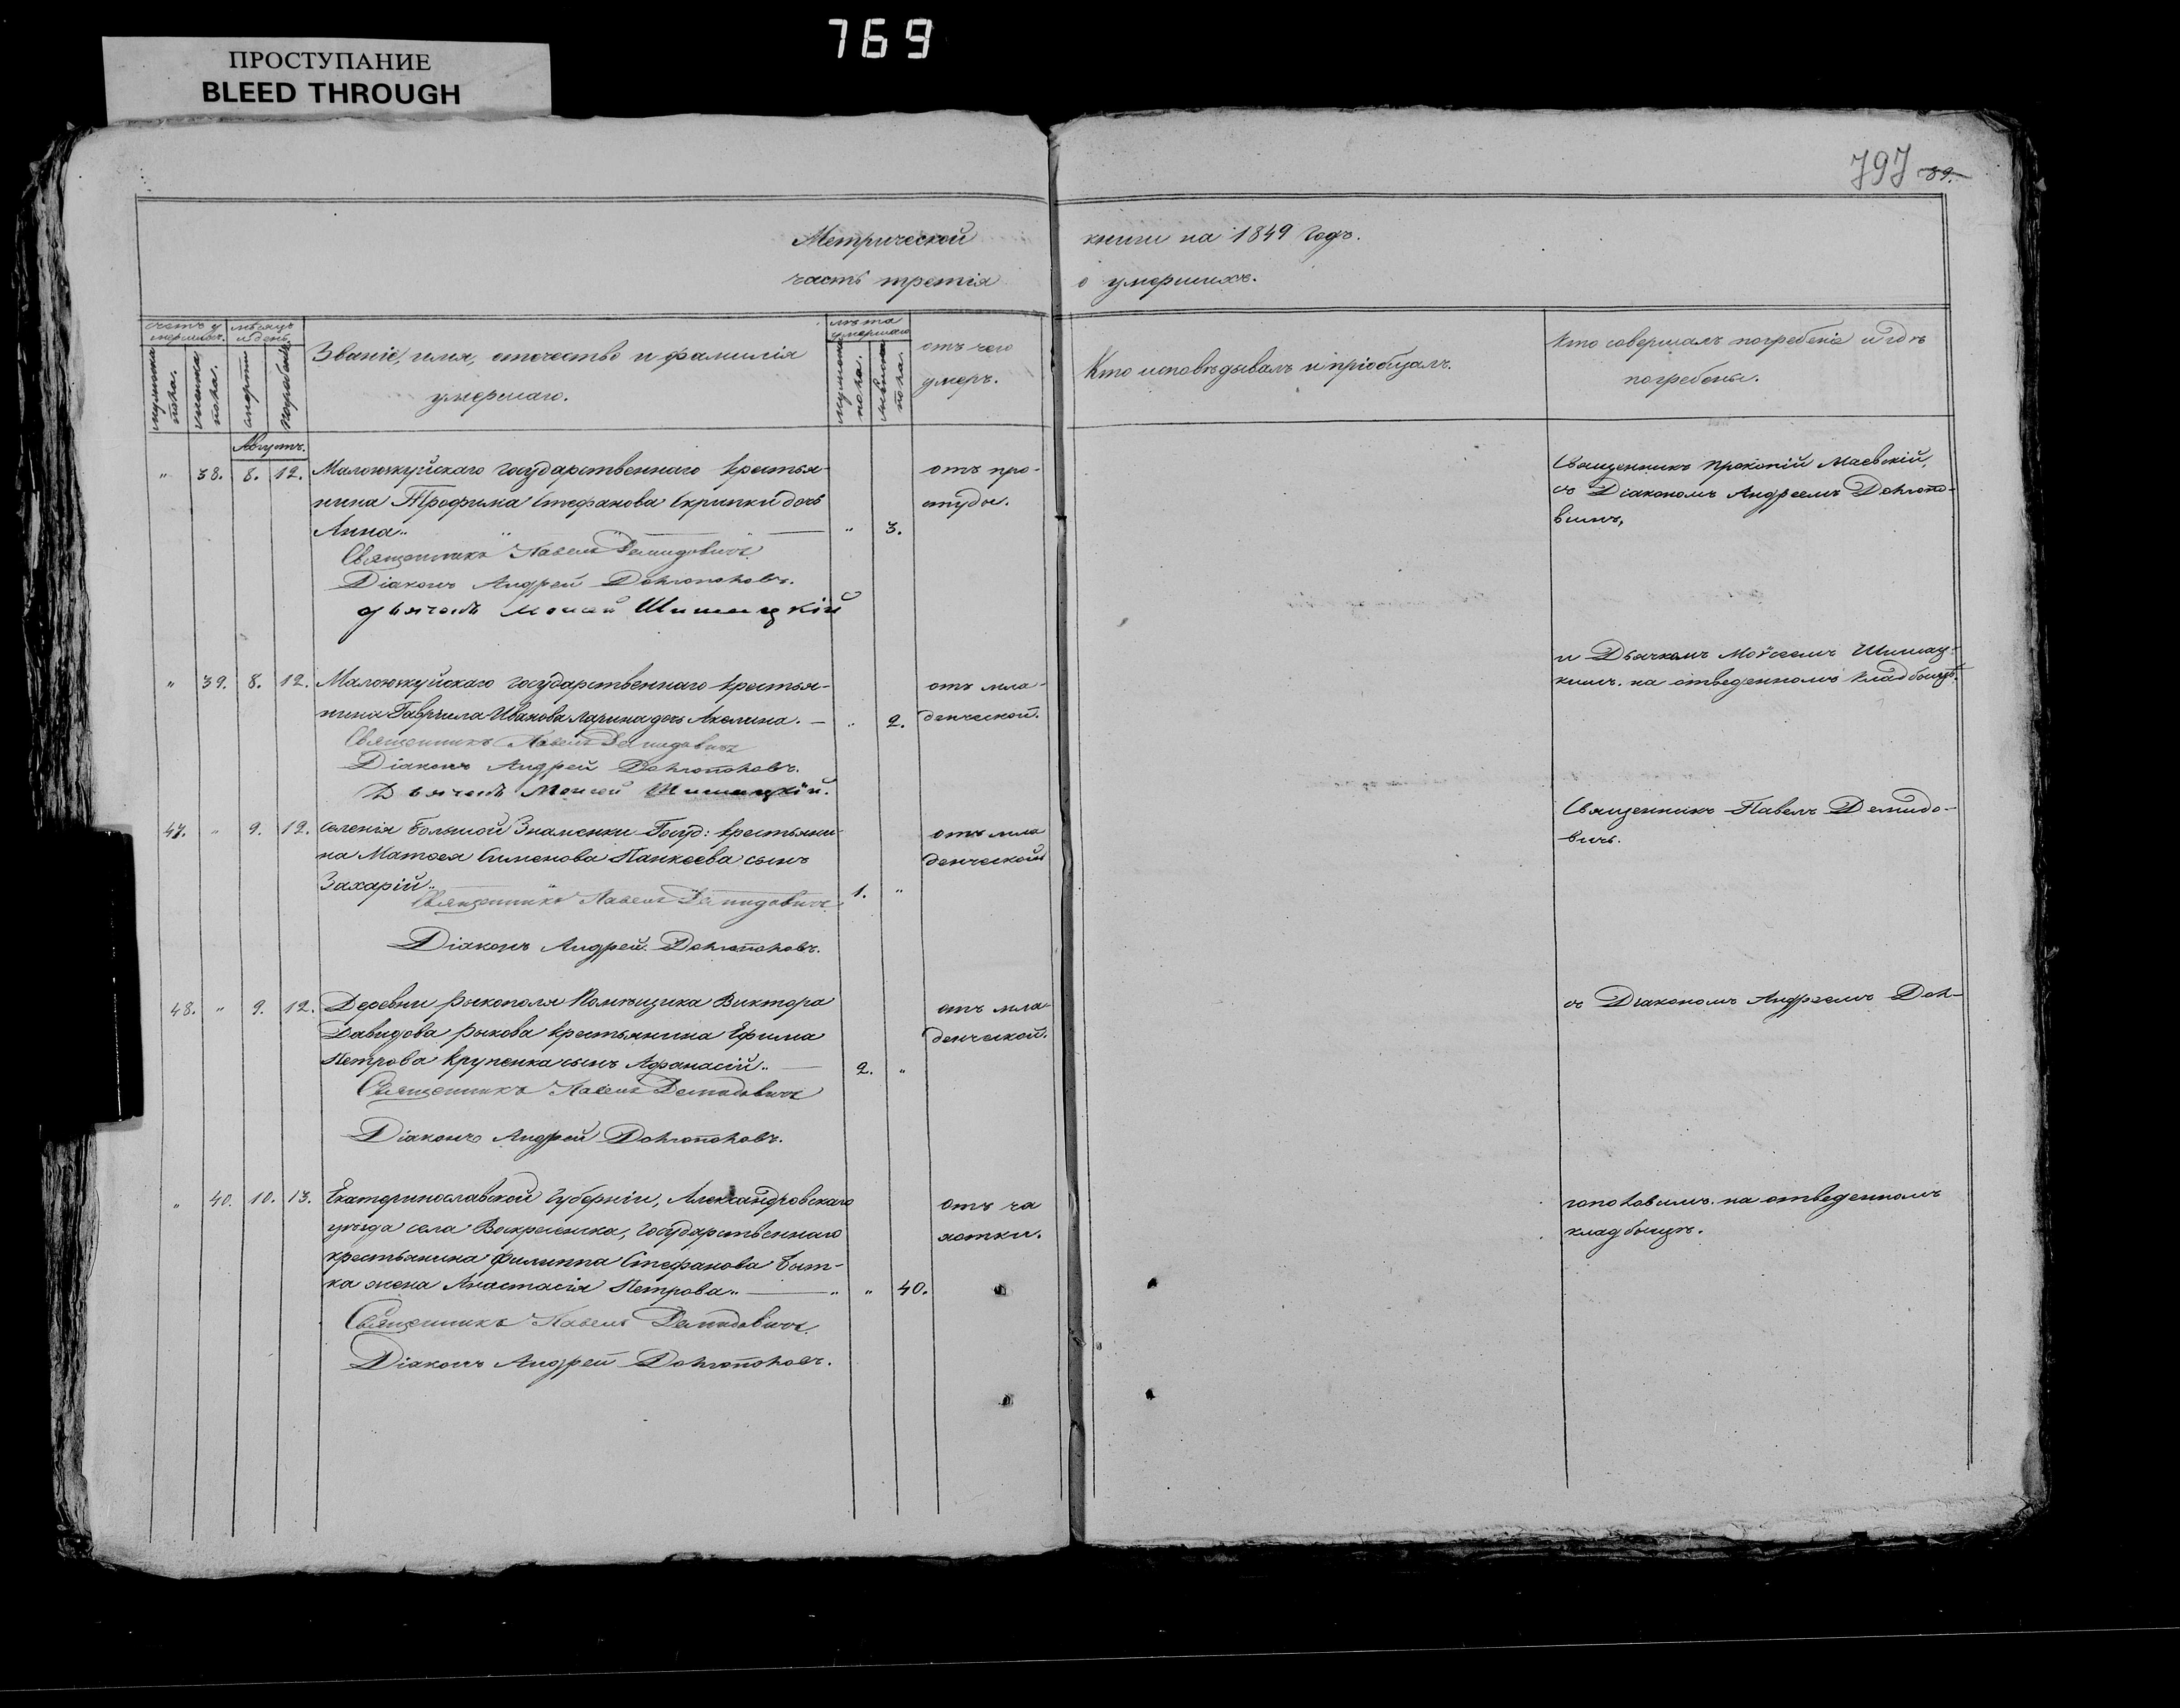 769
ПРОСТУПАНИЕ
BLEED THROUGH
797 89.
Метрической книги на 1849 Годъ.
часть третія о умершихъ.
счетъ у мѣсяцъ
мершихъ. и день.
мужеска пола.
женска пола.
смерти
погребенія
Званіе, имя, отчество и фамилія
умершаго.
лѣта
умершаго
мужеска пола.
женска пола.
отъ чего
умеръ.
Кто исповѣдывалъ и пріобщалъ.
Кто совершалъ погребеніе и гдѣ
погребены.
Августъ.
" 38. 8. 12. Малоюжкуйскаго государственнаго крестья-
нина Трофима Стефанова Скрипки дочь
Анна " " 3.
отъ про-
студы.
Священникъ Прокопій Маевскій,
съ Діакономъ Андреемъ
вымъ,
Священникъ Павелъ Демидовичъ
Діаконъ Андрей
Дьячекъ Моисей Шишацкій
и Дьячкомъ Моѵсеемъ Шишац-
кимъ. на отведенномъ кладбищѣ.
" 39. 8. 12. Малоюжкуйскаго государственнаго крестья-
нина Гавріила Иванова Ларина дочь Акилина. " 2.
отъ мла-
денческой.
Священникъ Павелъ Демидовичъ
Діаконъ Андрей
Дьячекъ Моисей Шишацкій.
47. " 9. 12. селенія Большой Знаменки Госуд: крестьяни-
на Матѳея Симеонова Панкеева сынъ
Захарій " 1. "
отъ мла
денческой
Священникъ Павелъ Демидо-
вичъ.
Священникъ Павелъ Демидовичъ
Діаконъ Андрей
48. " 9. 12. Деревни Рыкополя Помѣщика Виктора
Давидова Рыкова крестьянина Ефима
Петрова Крупенка сынъ Афанасій " 2. "
отъ мла-
денческой.
съ Діакономъ Андреемъ
Священникъ Павелъ Демидовичъ
Діаконъ Андрей
" 40. 10. 13. Екатеринославской Губерніи, Александровскаго
уѣзда села Воскресенска, государственнаго
крестьянина Филиппа Стефанова
жена Анастасія Петрова " " " 40.
отъ ча
хотки.
на отведенномъ
кладбищѣ.
Священникъ Павелъ Демидовичъ
Діаконъ Андрей